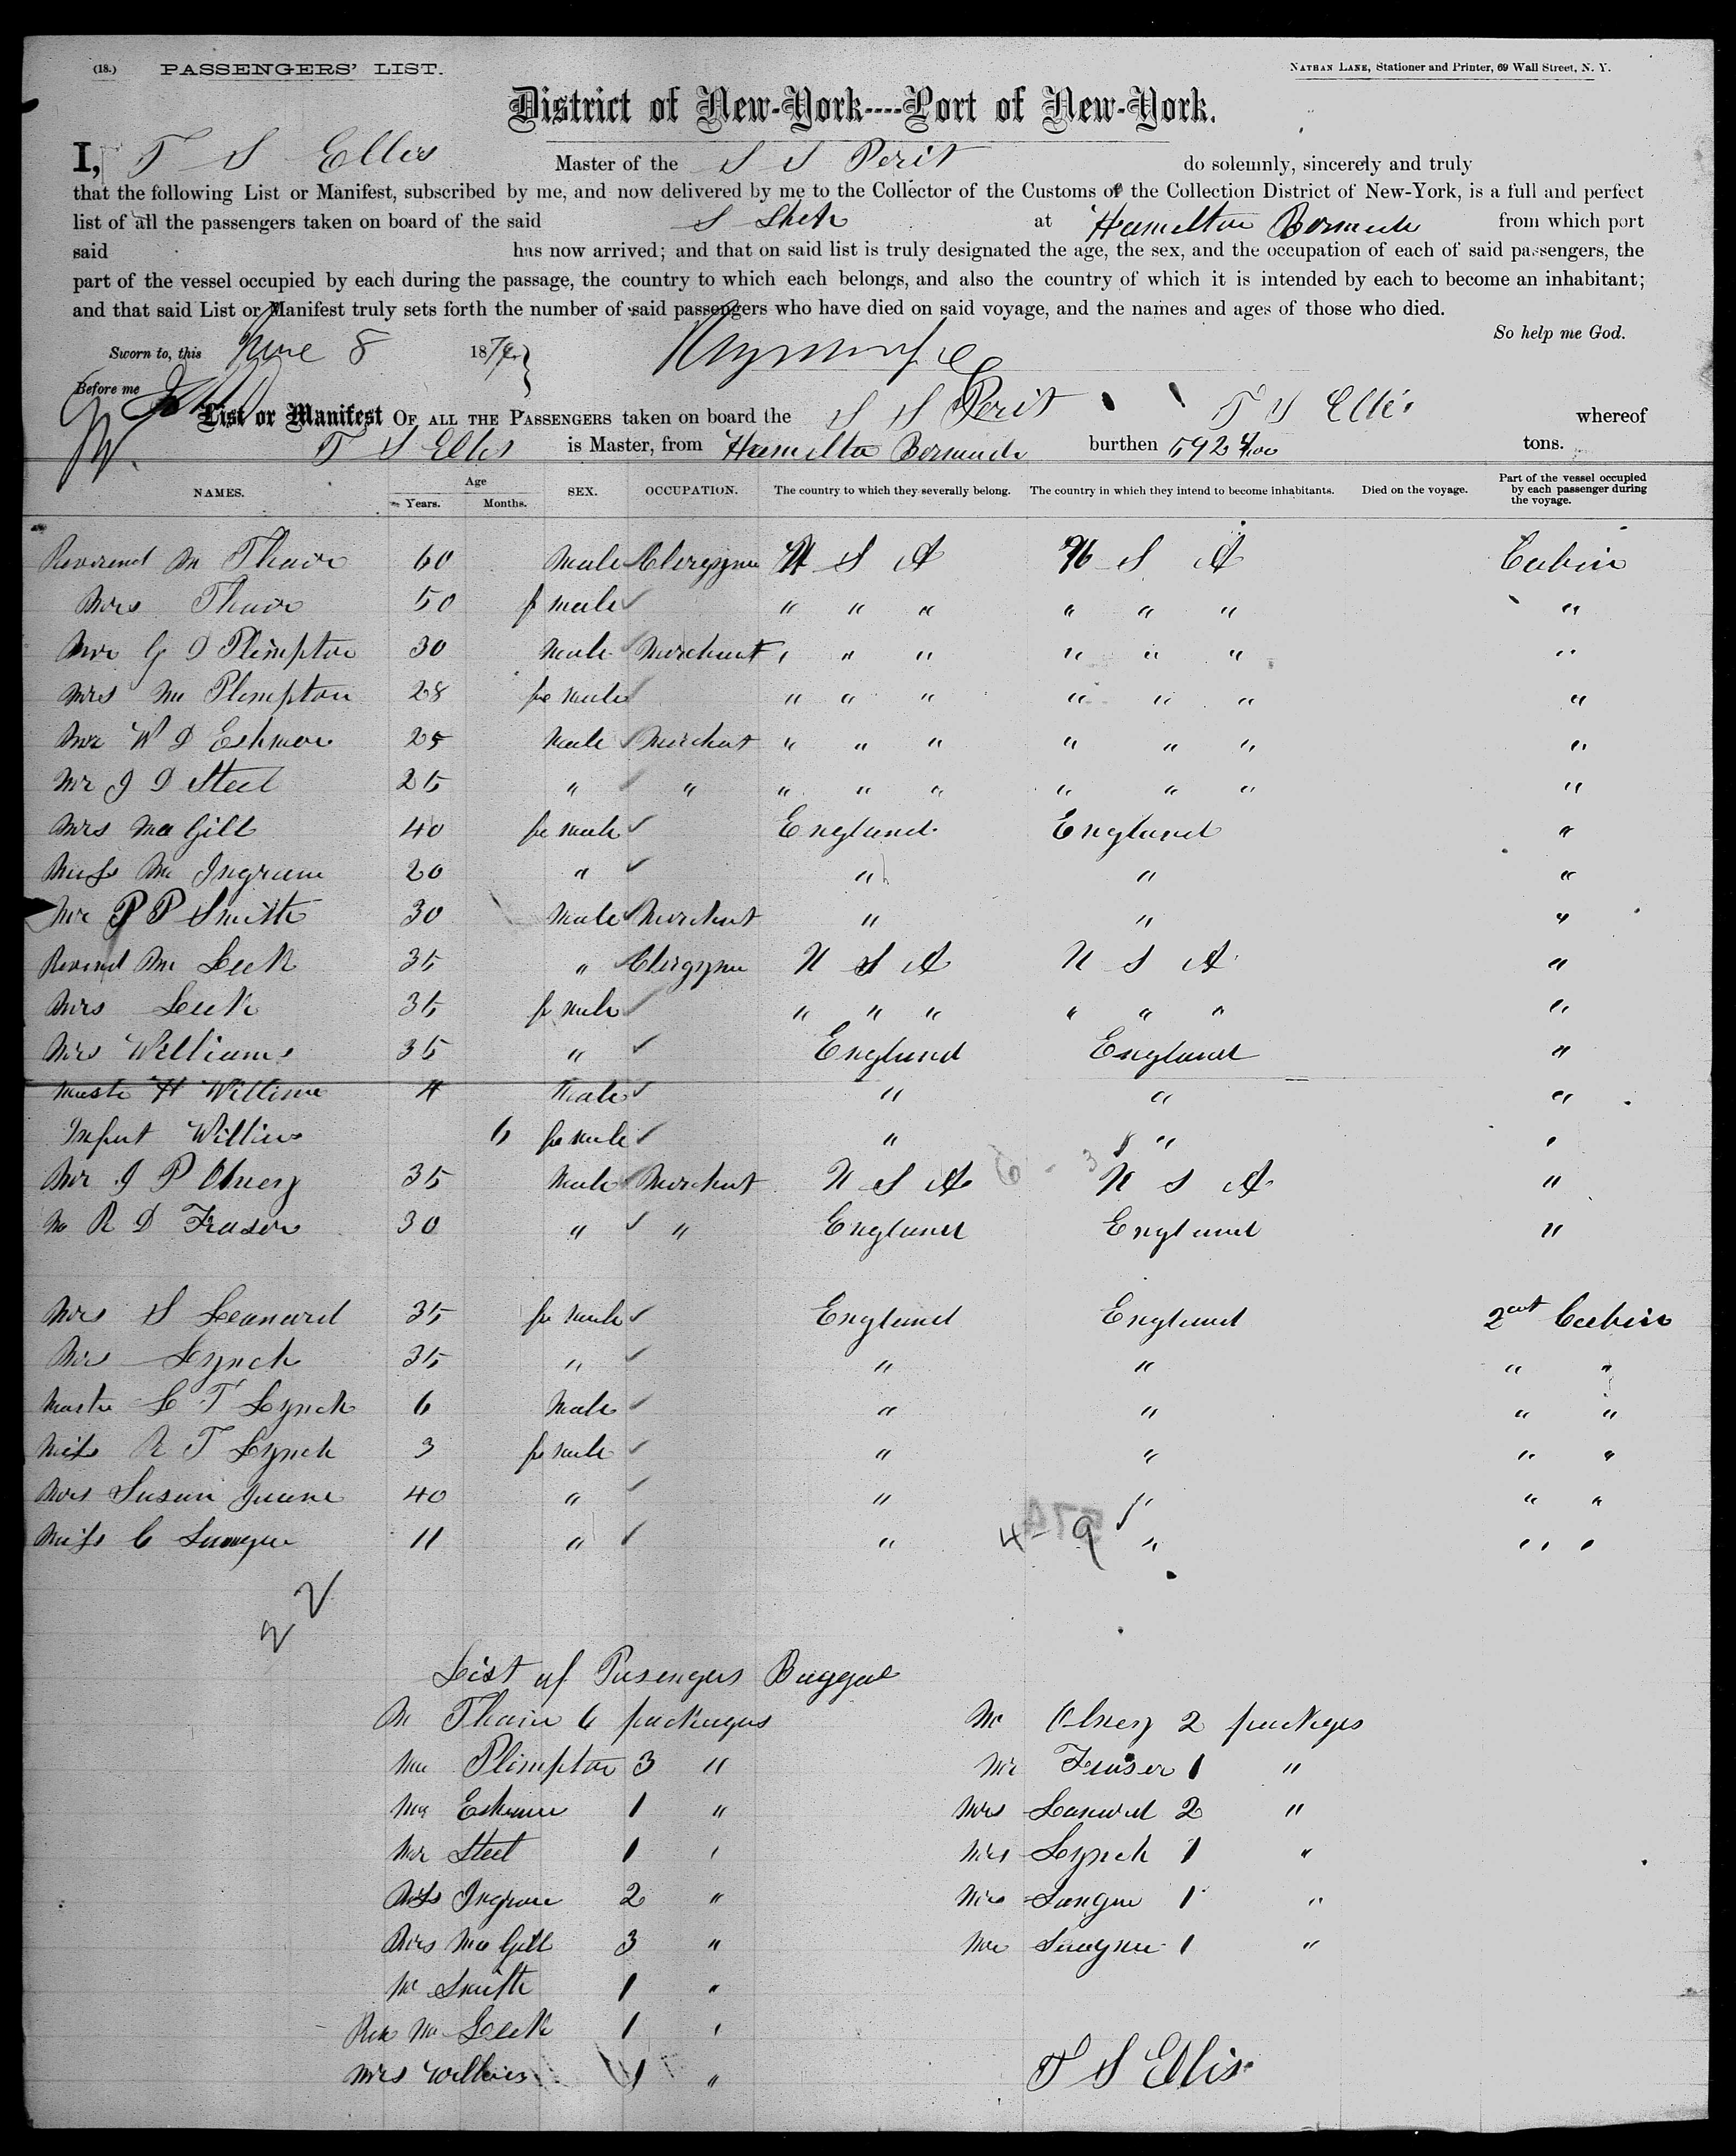 (18.) PASSENGERS' LIST. NATHAN LANE, Stationer and Printer, 69 Wall Street, N. Y.
District of New-York----Port of New-York.
I, T S Ellis Master of the S S Perit do solemnly, sincerely and truly
that the following List or Manifest, subscribed by me, and now delivered by me to the Collector of the Customs of the Collection District of New-York, is a full and perfect
list of all the passengers taken on board of the said at Hamilton Bermuda from which port
said has now arrived; and that on said list is truly designated the age, the sex, and the occupation of each of said passengers, the
part of the vessel occupied by each during the passage, the country to which each belongs, and also the country of which it is intended by each to become an inhabitant;
and that said List or Manifest truly sets forth the number of said passengers who have died on said voyage, and the names and ages of those who died.
So help me God.
Sworn to, this June 8 187
Before me
List or Manifest OF ALL THE PASSENGERS taken on board the S S Perit T S Ellis whereof
T S Ellis is Master, from Hamilton Bermuda burthen 592 4/100 tons.
NAMES. Age Years. Months. SEX. OCCUPATION. The country to which they severally belong. The country in which they intend to become inhabitants. Died on the voyage. Part of the vessel occupied by each passenger during the voyage.
Reverend Mr 60 Male Clergyman U S A U S A Cabin
Mrs 50 fe male " " " " " " "
Mr G D Plimpton 30 Male Merchant " " " " " " "
Mrs M Plimpton 28 fe male " " " " " " "
Mr W D 25 Male Merchant " " " " " " "
Mr J D Steel 25 " " " " " " " " "
Mrs Ma Gill 40 fe male England England "
Miss M Ingram 20 " " " "
Mr P P Smith 30 Male Merchant " " "
Reverend Mr Leek 35 " Clergyman U S A U S A "
Mrs Leek 35 fe male " " " " " " "
Mrs Williams 35 " England England "
Master H Williams 4 Male " " "
Infant Williams 6 fe male " " "
Mr J P Olney 35 Male Merchant U S A U S A "
Mr R D Fraser 30 " " England England "
Mrs S Leonard 35 fe male England England 2nd Cabin
Mrs Lynch 35 " " " " "
Master L T Lynch 6 Male " " " "
Miss R T Lynch 3 fe male " " " "
Mrs Susan 40 " " " " "
Miss C 11 " " 4 - 9 " " "
22
List of Pasengers Baggae
Mr 6 packages Mr Olney 2 packages
Mr Plimpton 3 " Mr Fraser 1 "
Mr 1 " Mrs Leonard 2 "
Mr Steel 1 " Mrs Lynch 1 "
Miss Ingram 2 " 1 "
Mrs Ma Gill 3 " 1 "
Mr Smith 1 "
Rev Mr Leek 1 "
Mrs Williams 1 "
T S Ellis